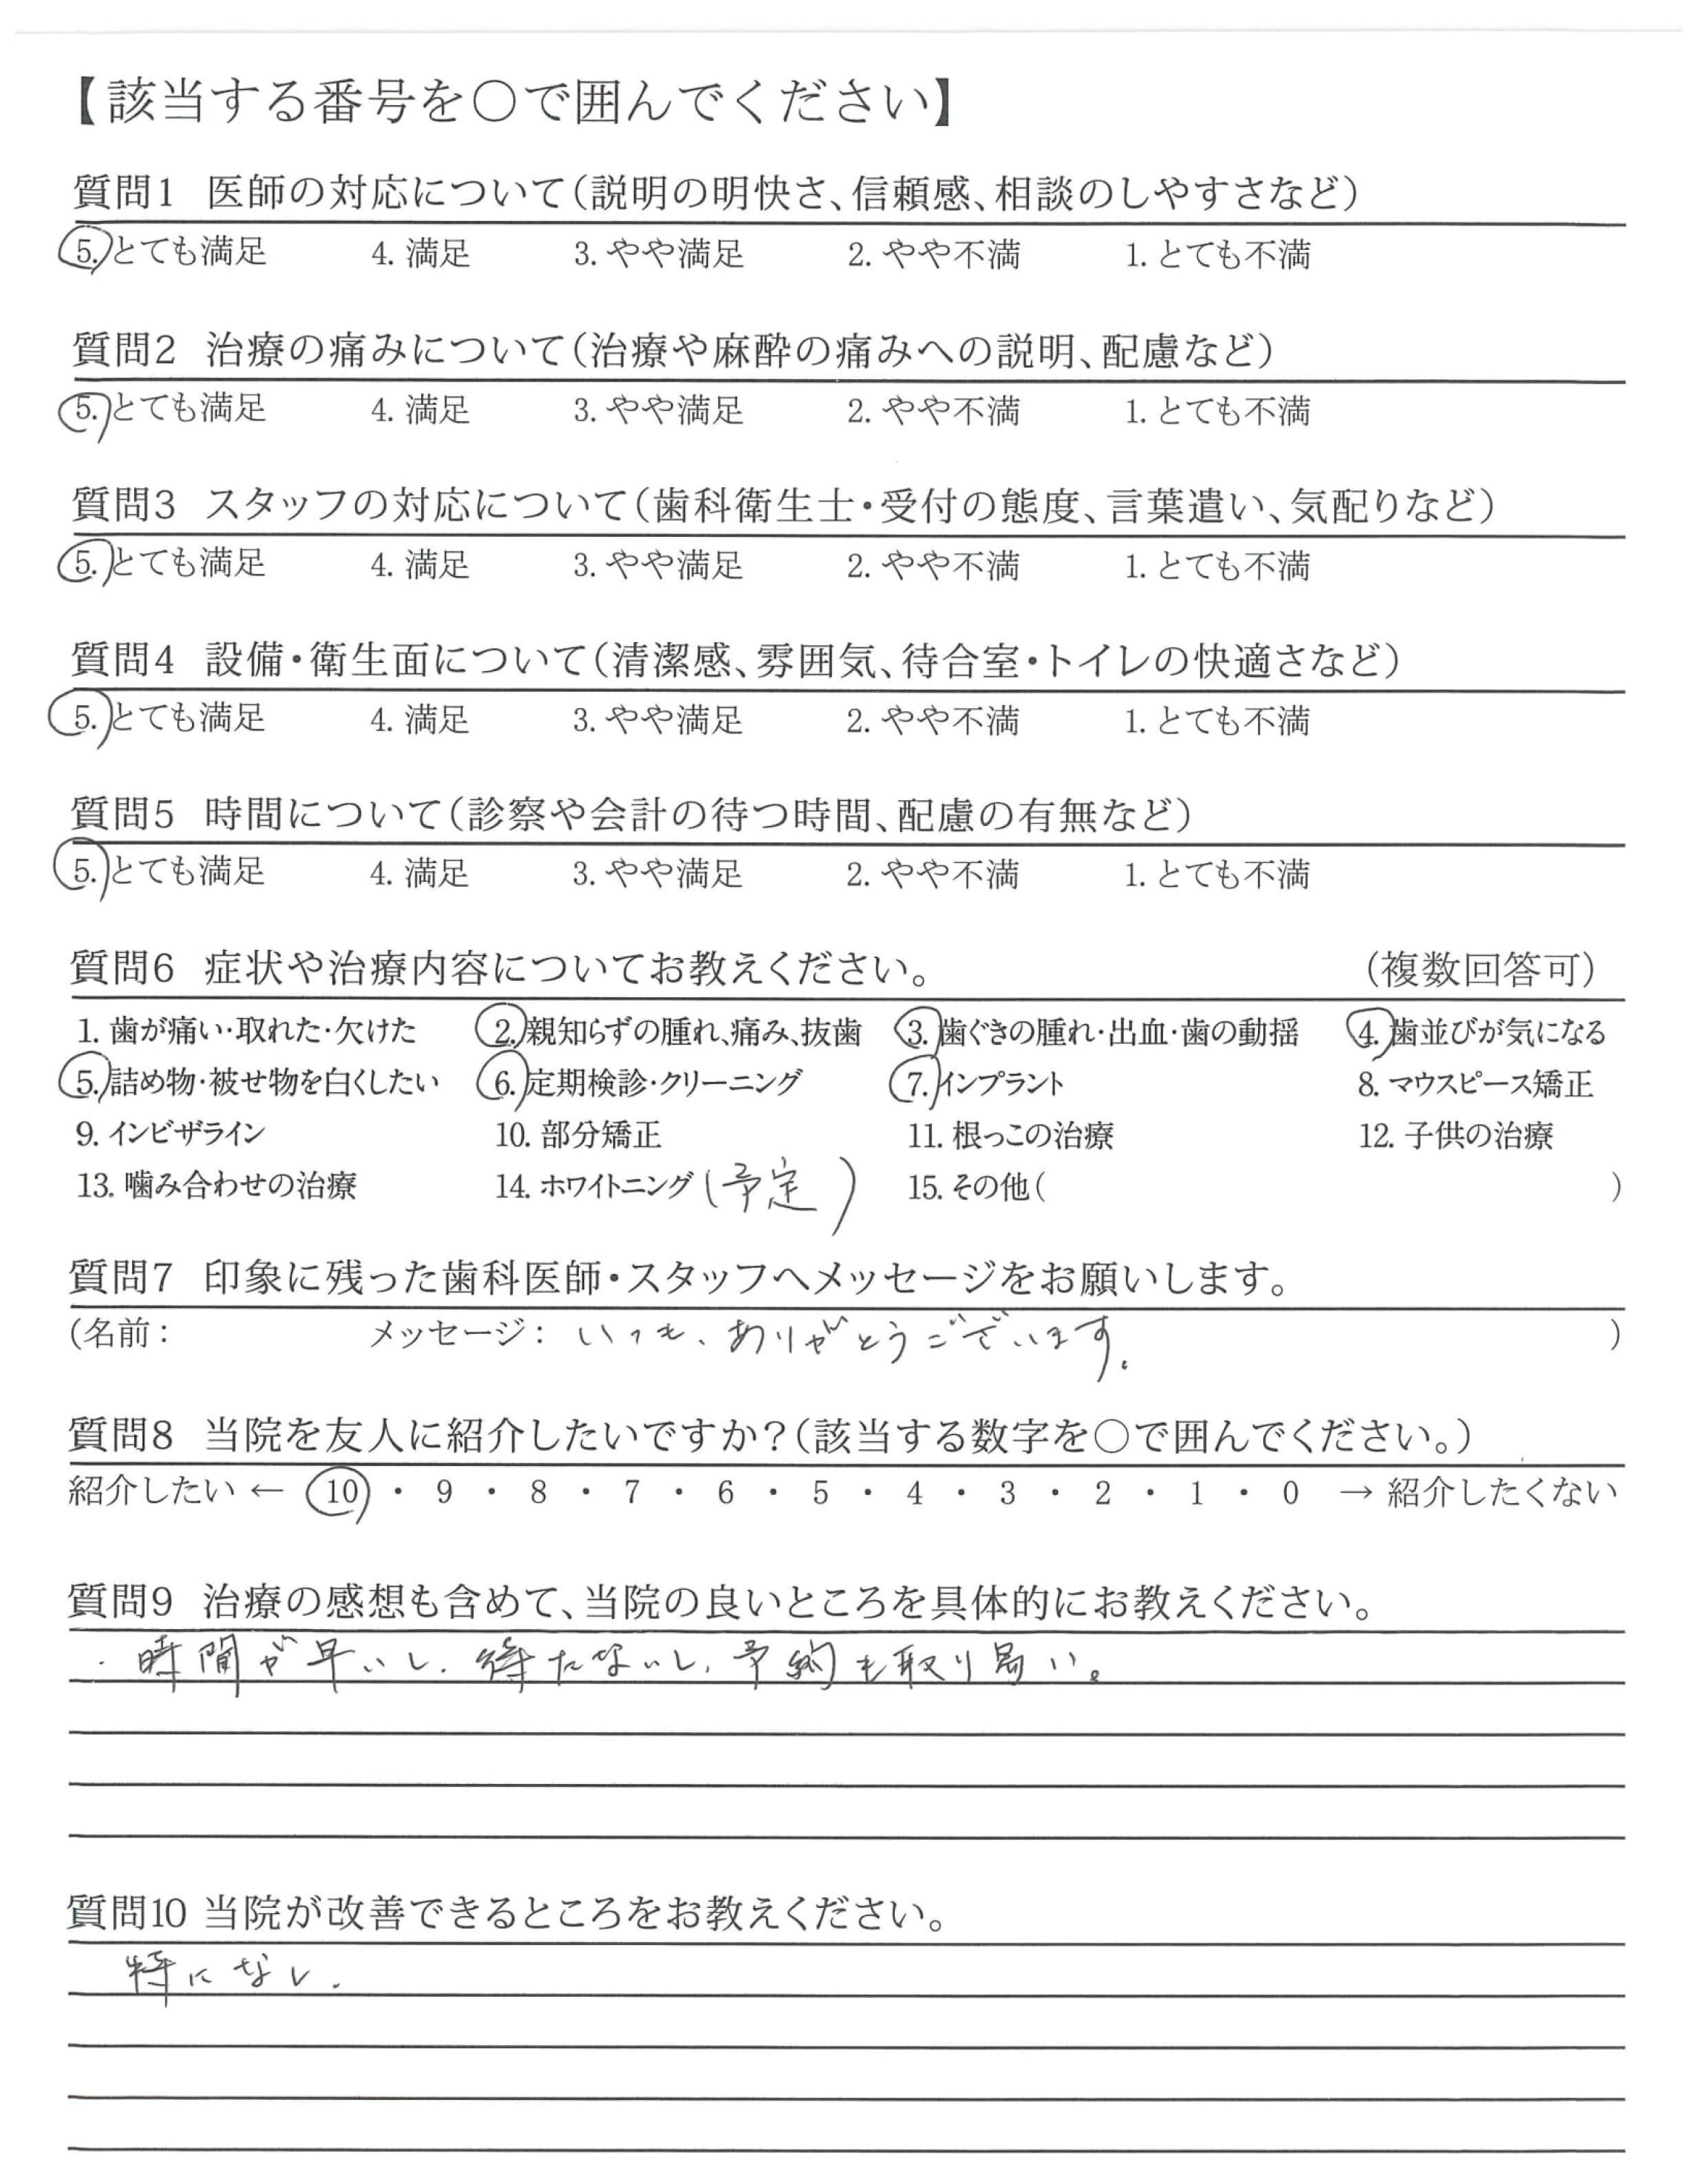 【該当する番号を○で囲んでください】
質問1 医師の対応について(説明の明快さ、信頼感、相談のしやすさなど)
5. とても満足 4. 満足 3. やや満足 2. やや不満 1. とても不満
質問2 治療の痛みについて(治療や麻酔の痛みへの説明、配慮など)
5. とても満足 4. 満足 3. やや満足 2. やや不満 1. とても不満
質問3 スタッフの対応について(歯科衛生士・受付の態度、言葉遣い、気配りなど)
5. とても満足 4. 満足 3. やや満足 2. やや不満 1. とても不満
質問4 設備・衛生面について(清潔感、雰囲気、待合室・トイレの快適さなど)
5. とても満足 4. 満足 3. やや満足 2. やや不満 1. とても不満
質問5 時間について(診察や会計の待つ時間、配慮の有無など)
5. とても満足 4. 満足 3. やや満足 2. やや不満 1. とても不満
質問6 症状や治療内容についてお教えください。 (複数回答可)
1. 歯が痛い・取れた・欠けた 2. 親知らずの腫れ、痛み、抜歯 3. 歯ぐきの腫れ・出血・歯の動揺 4. 歯並びが気になる
5. 詰め物・被せ物を白くしたい 6. 定期検診・クリーニング 7. インプラント 8. マウスピース矯正
9. インビザライン 10. 部分矯正 11. 根っこの治療 12. 子供の治療
13. 噛み合わせの治療 14. ホワイトニング (予定) 15. その他( )
質問7 印象に残った歯科医師・スタッフへメッセージをお願いします。
(名前: メッセージ: いつも、ありがとうございます。 )
質問8 当院を友人に紹介したいですか?(該当する数字を○で囲んでください。)
紹介したい ← 10 ・ 9 ・ 8 ・ 7 ・ 6 ・ 5 ・ 4 ・ 3 ・ 2 ・ 1 ・ 0 → 紹介したくない
質問9 治療の感想も含めて、当院の良いところを具体的にお教えください。
・時間が早いし、待たないし、予約も取り易い。
質問10 当院が改善できるところをお教えください。
特になし.